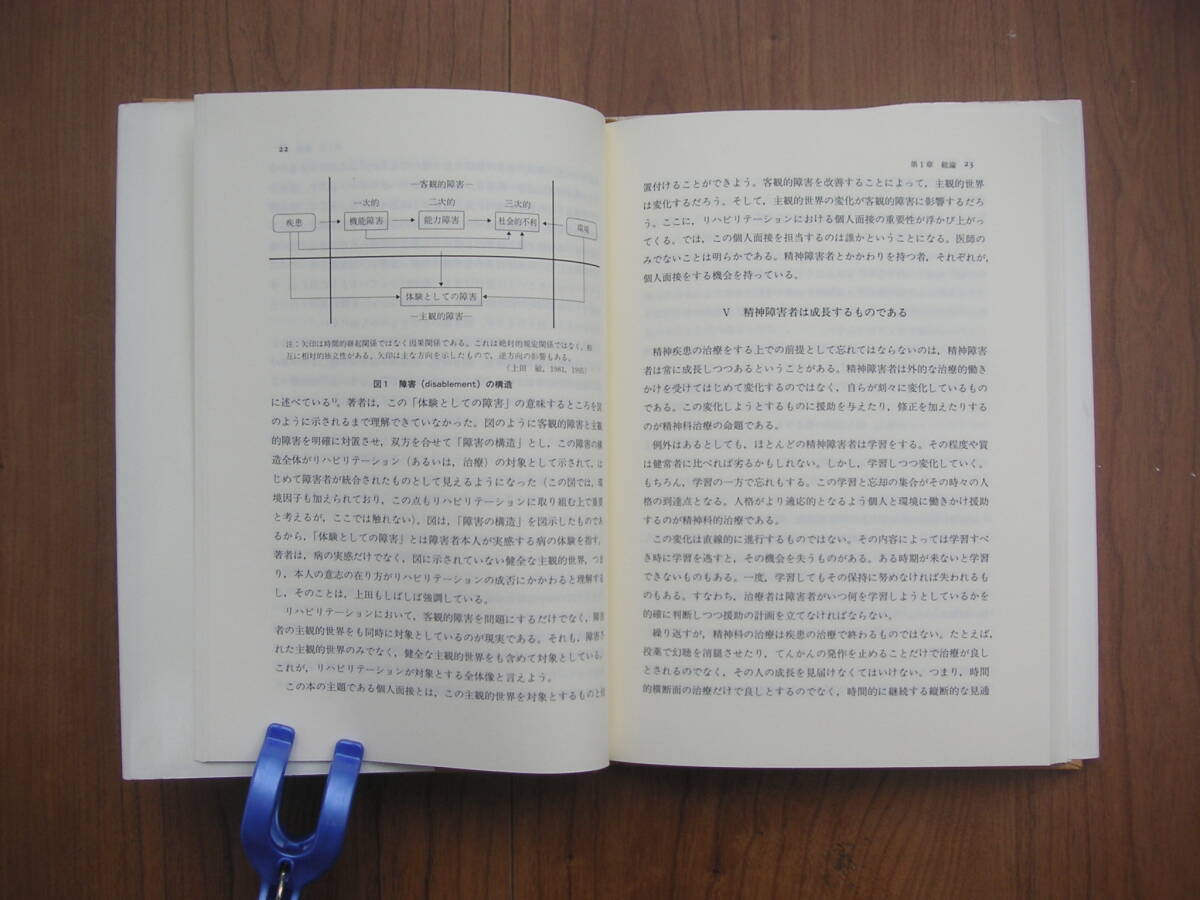 22
―客観的障害―
一次的 二次的 三次的
疾患 機能障害 能力障害 社会的不利 環境
体験としての障害
―主観的障害―
注：矢印は時間的継起関係ではなく因果関係である。これは絶対的規定関係ではなく，相
互に相対的独立性がある。矢印は主な方向を示したもので，逆方向の影響もある。
（上田 敏，1981，1985）
図1 障害（disablement）の構造
に述べている¹⁾。著者は，この「体験としての障害」の意味するところを図
のように示されるまで理解できていなかった。図のように客観的障害と主観
的障害を明確に対置させ，双方を合せて「障害の構造」とし，この障害の構
造全体がリハビリテーション（あるいは，治療）の対象として示されて，は
じめて障害者が統合されたものとして見えるようになった（この図では，環
境因子も加えられており，この点もリハビリテーションに取り組む上で重要
と考えるが，ここでは触れない）。図は，「障害の構造」を図示したものであ
るから，「体験としての障害」とは障害者本人が実感する病の体験を指す。
著者は，病の実感だけでなく，図に示されていない健全な主観的世界，つま
り，本人の意志の在り方がリハビリテーションの成否にかかわると理解する
し，そのことは，上田もしばしば強調している。
リハビリテーションにおいて，客観的障害を問題にするだけでなく，障害
者の主観的世界をも同時に対象としているのが現実である。それも，障害さ
れた主観的世界のみでなく，健全な主観的世界をも含めて対象としている。
これが，リハビリテーションが対象とする全体像と言えよう。
この本の主題である個人面接とは，この主観的世界を対象とするものと位
第1章 総論 23
置付けることができよう。客観的障害を改善することによって，主観的世界
は変化するだろう。そして，主観的世界の変化が客観的障害に影響するだろ
う。ここに，リハビリテーションにおける個人面接の重要性が浮かび上がっ
てくる。では，この個人面接を担当するのは誰かということになる。医師の
みでないことは明らかである。精神障害者とかかわりを持つ者，それぞれが，
個人面接をする機会を持っている。
V 精神障害者は成長するものである
精神疾患の治療をする上での前提として忘れてはならないのは，精神障害
者は常に成長しつつあるということがある。精神障害者は外的な治療的働き
かけを受けてはじめて変化するのではなく，自らが刻々に変化しているもの
である。この変化しようとするものに援助を与えたり，修正を加えたりする
のが精神科治療の命題である。
例外はあるとしても，ほとんどの精神障害者は学習をする。その程度や質
は健常者に比べれば劣るかもしれない。しかし，学習しつつ変化していく。
もちろん，学習の一方で忘れもする。この学習と忘却の集合がその時々の人
格の到達点となる。人格がより適応的となるよう個人と環境に働きかけ援助
するのが精神科的治療である。
この変化は直線的に進行するものではない。その内容によっては学習すべ
き時に学習を逃すと，その機会を失うものがある。ある時期が来ないと学習
できないものもある。一度，学習してもその保持に努めなければ失われるも
のもある。すなわち，治療者は障害者がいつ何を学習しようとしているかを
的確に判断しつつ援助の計画を立てなければならない。
繰り返すが，精神科の治療は疾患の治療で終わるものではない。たとえば，
投薬で幻聴を消腿させたり，てんかんの発作を止めることだけで治療が良し
とされるのでなく，その人の成長を見届けなくてはいけない。つまり，時間
的横断面の治療だけで良しとするのでなく，時間的に継続する縦断的な見通